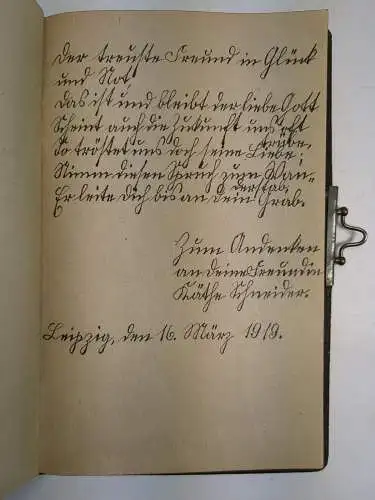 Der treuste Freund in Glück
und Not,
Das ist und bleibt der liebe Gott
Scheint auch die Zukunft uns oft
trübe,
So tröstet uns doch seine Liebe:
Nimm diesen Spruch zum Wan-
derstab,
Er leite Dich bis an dein Grab.
Zum Andenken
an deine Freundin
Käthe Schneider.
Leipzig, den 16. März 1919.